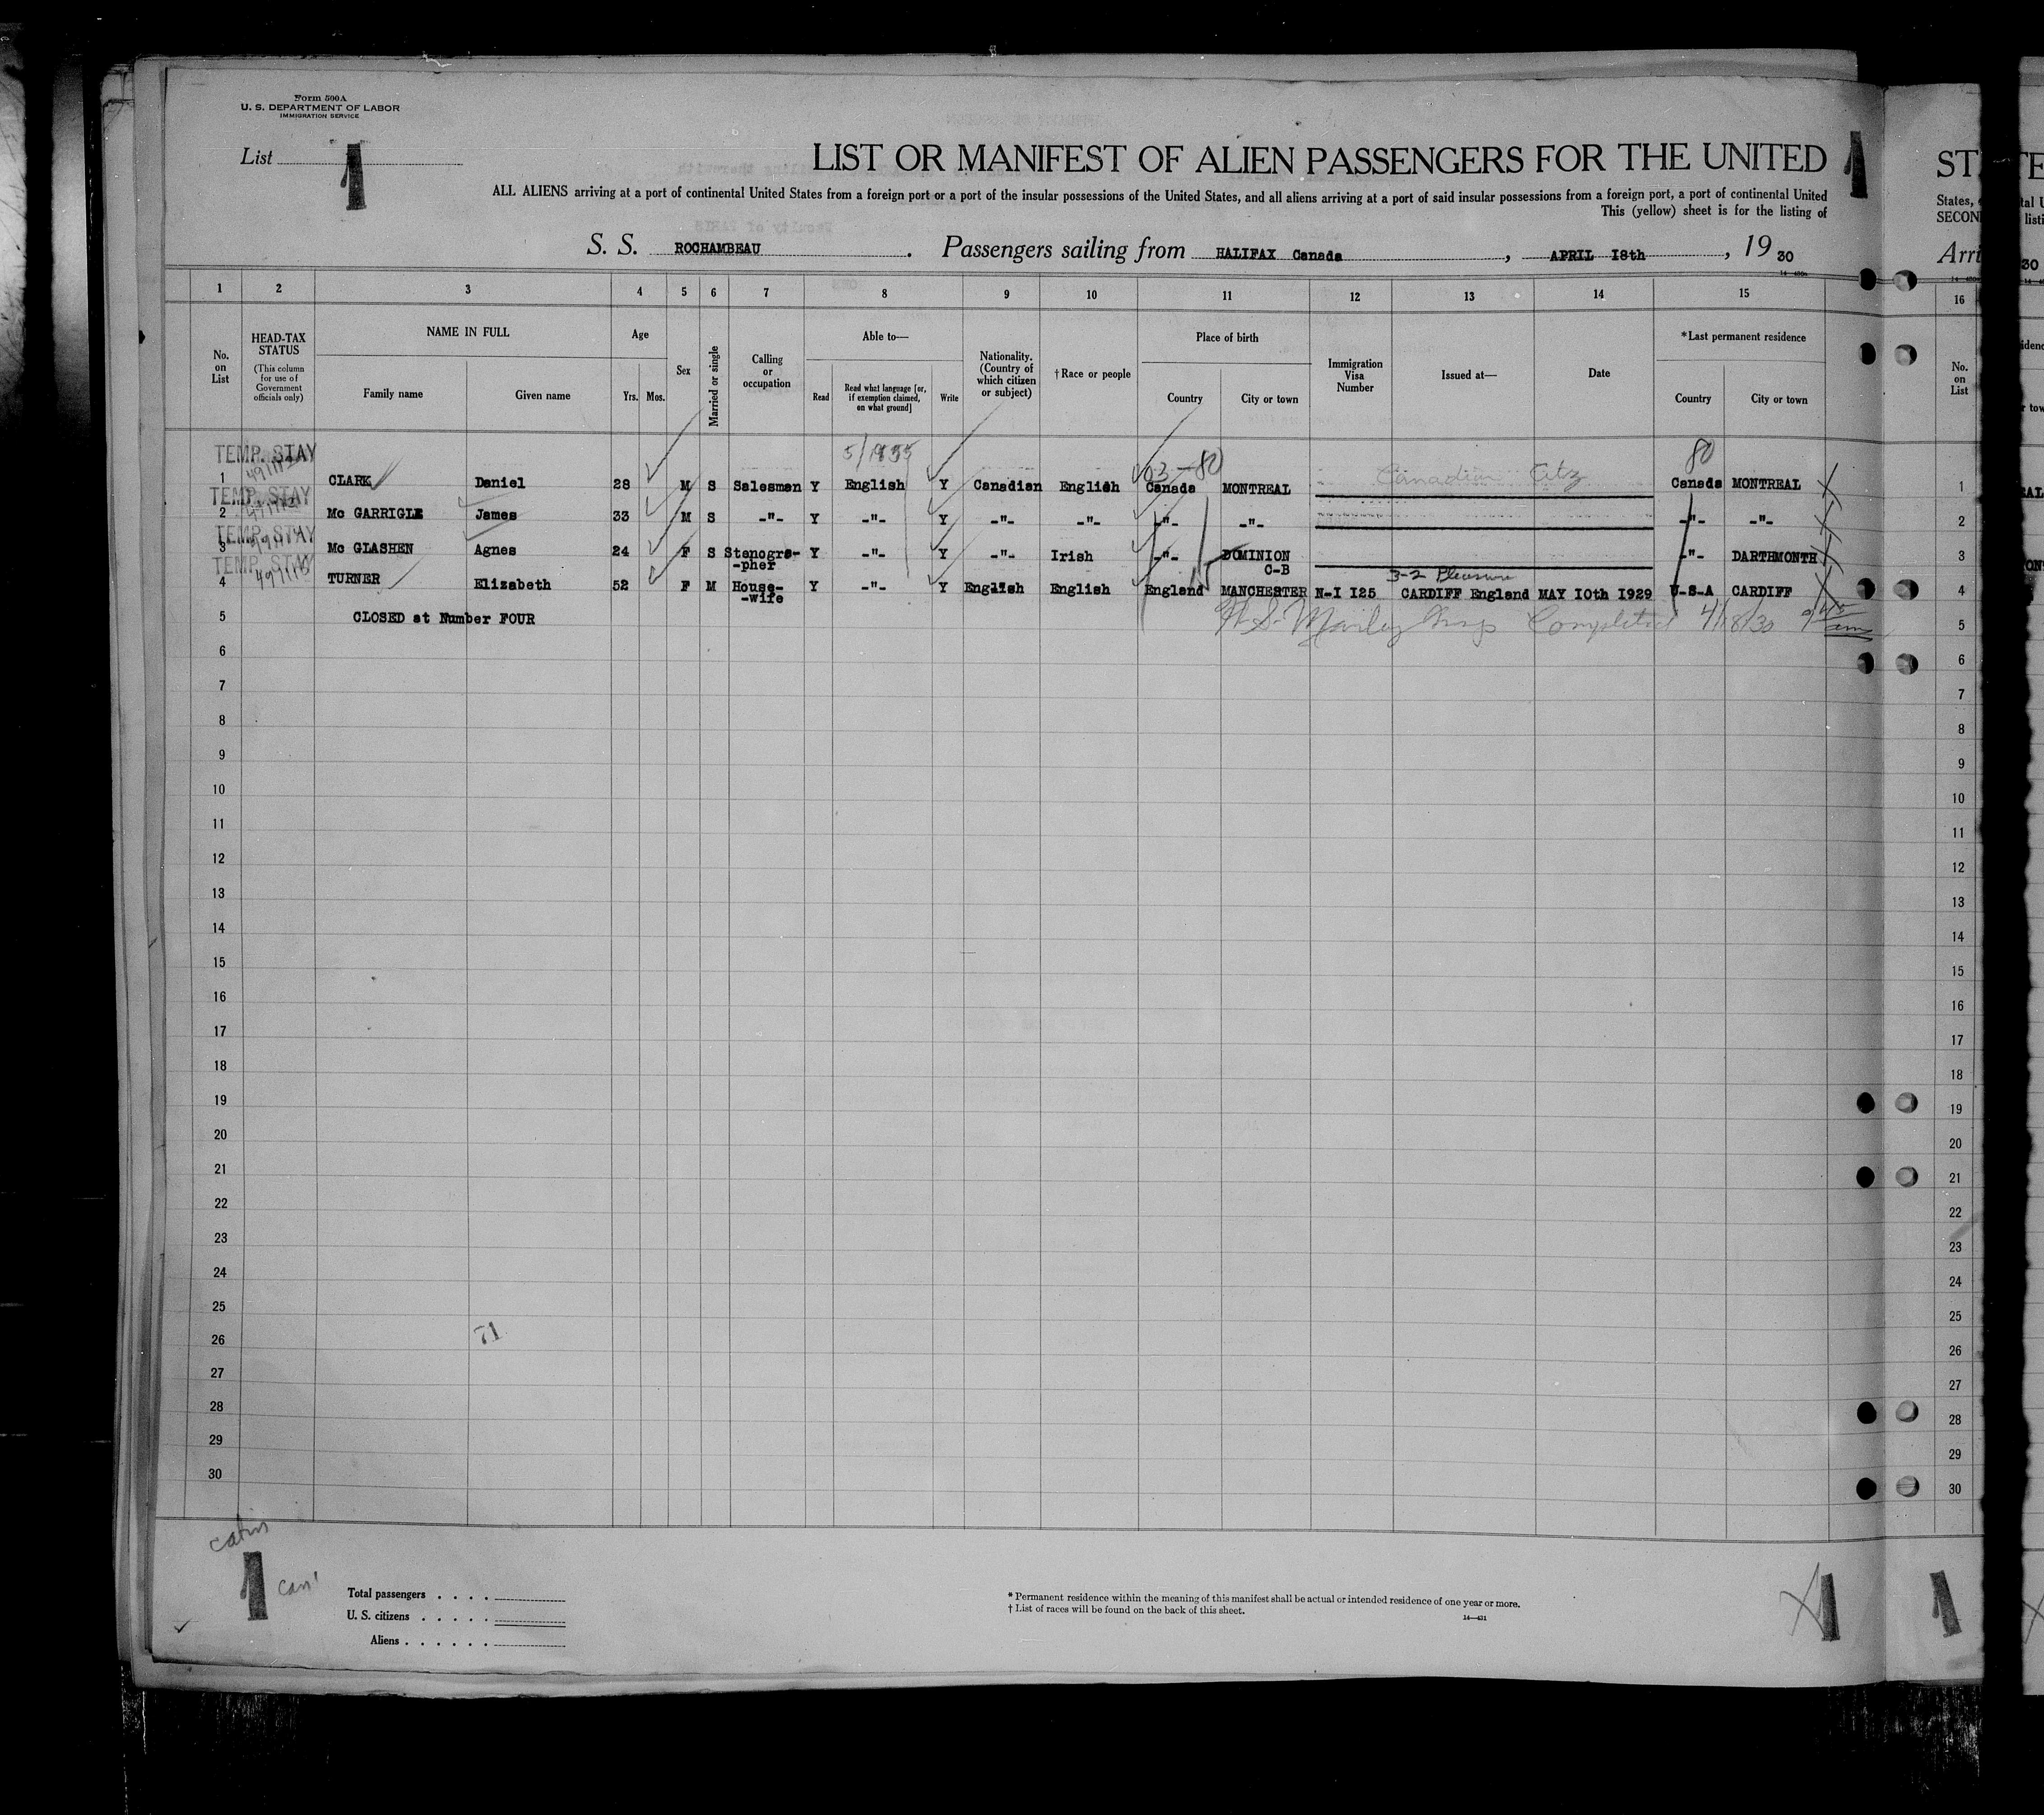 Form 500A
U. S. DEPARTMENT OF LABOR
IMMIGRATION SERVICE
List 1
LIST OR MANIFEST OF ALIEN PASSENGERS FOR THE UNITED 1
ALL ALIENS arriving at a port of continental United States from a foreign port or a port of the insular possessions of the United States, and all aliens arriving at a port of said insular possessions from a foreign port, a port of continental United
This (yellow) sheet is for the listing of
S. S. ROCHAMBEAU. Passengers sailing from HALIFAX Canada, APRIL I8th, 1930
1 2 3 4 5 6 7 8 9 10 11 12 13 14 15
No. on List
HEAD-TAX STATUS
(This column for use of Government officials only)
NAME IN FULL
Family name Given name
Age
Yrs. Mos.
Sex
Married or single
Calling or occupation
Able to—
Read
Read what language [or, if exemption claimed, on what ground]
Write
Nationality. (Country of which citizen or subject)
†Race or people
Place of birth
Country City or town
Immigration Visa Number
Issued at—
Date
*Last permanent residence
Country City or town
TEMP. STAY 80
1 CLARK Daniel 28 M S Salesman Y English Y Canadian English Canada MONTREAL Canadian Canada MONTREAL 1
TEMP. STAY
2 Mc GARRIGLE James 33 M S -"- Y -"- Y -"- -"- -"- -"- -"- -"- 2
TEMP. STAY
3 Mc GLASHEN Agnes 24 F S Stenogra- Y -"- Y -"- Irish -"- DOMINION -"- DARTHMONTH 3
-pher C-B
TEMP. STAY
3-2 Pleasure
4 TURNER Elizabeth 52 F M House- Y -"- Y English English England MANCHESTER N-I I25 CARDIFF England MAY I0th I929 U-S-A CARDIFF 4
-wife
5 CLOSED at Number FOUR Completed 4/18/30 5
6 6
7 7
8 8
9 9
10 10
11 11
12 12
13 13
14 14
15 15
16 16
17 17
18 18
19 19
20 20
21 21
22 22
23 23
24 24
25 25
71
26 26
27 27
28 28
29 29
30 30
1
Total passengers
U. S. citizens
Aliens
* Permanent residence within the meaning of this manifest shall be actual or intended residence of one year or more.
† List of races will be found on the back of this sheet.
14—431
1
ST
States,
SECON
Arri
16
No. on List
1